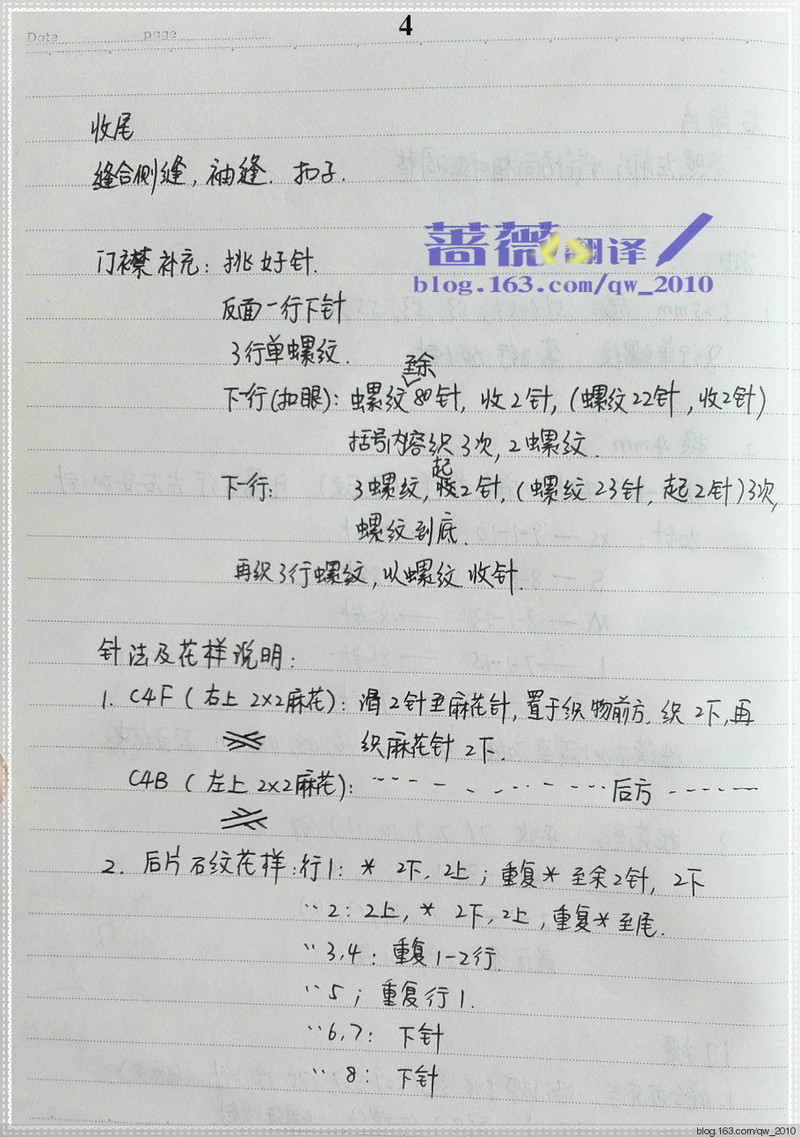 4
Date page
收尾
缝合侧缝, 袖缝. 扣子.
蔷薇翻译
blog.163.com/qw_2010
门襟补充: 挑好针.
反面一行下针
3行单螺纹.
下一行(扣眼): 螺纹至余80针, 收2针, (螺纹22针, 收2针)
括号内容织3次, 2螺纹.
下一行: 3螺纹, 起2针, (螺纹23针, 起2针)3次,
螺纹到底.
再织3行螺纹, 以螺纹收针.
针法及花样说明:
1. C4F (右上2×2麻花): 滑2针至麻花针, 置于织物前方. 织2下, 再
织麻花针2下.
C4B (左上2×2麻花): -------- 后方 ------
2. 后片石纹花样: 行1: * 2下, 2上; 重复*至余2针, 2下
〃2: 2上, * 2下, 2上, 重复*至尾.
〃3,4: 重复1-2行.
〃5; 重复行1.
〃6,7: 下针
〃8: 下针
blog.163.com/qw_2010